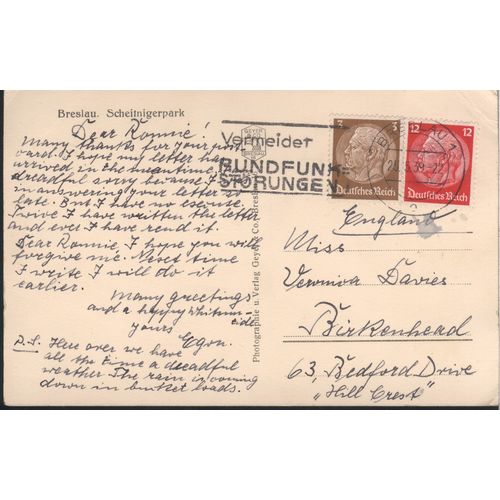 Breslau. Scheitnigerpark
Dear Ronnie!
Many thanks for your post
card. I hope my letter has
arrived in the meantime,
dreadful sorry because I
in answering your letter so
late. But I have no excuse.
Twice I have written the letter
and ever I have rend it.
Dear Ronnie, I hope you will
forgive me. Next time
I write I will do it
earlier.
Many greetings
and a happy Whitsun-
tide
yours
Egon.
P.S. Here over we have
all the time a dreadful
weather. The rain is coming
down in bucket loads.
Photographie u. Verlag Geyer & Co. Breslau
Vermeidet
RUNDFUNK=
STÖRUNGEN
3
Deutsches Reich
12
Deutsches Reich
BRESLAU 1
England
Miss
Veronica Davies
Birkenhead
63, Bedford Drive
"Hill Crest"